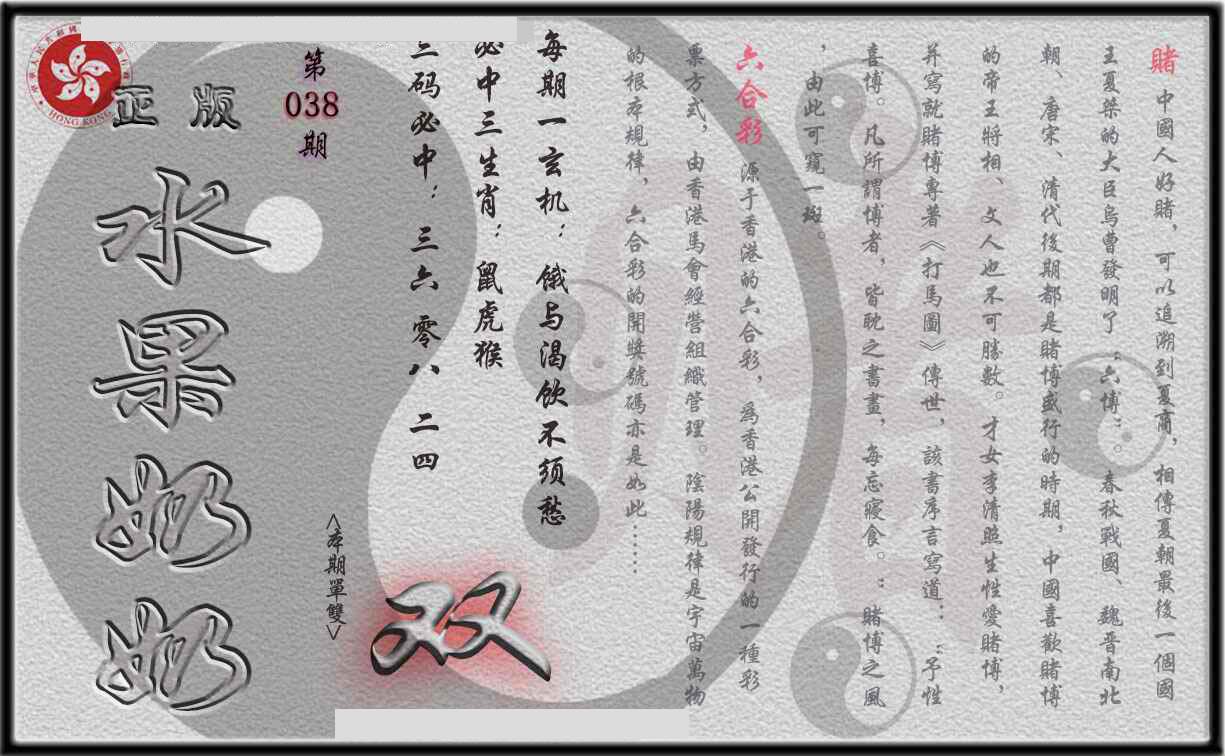 賭 中國人好賭，可以追溯到夏商，相傳夏朝最後一個國
王夏桀的大臣烏曹發明了“六博”。春秋戰國、魏晉南北
朝、唐宋、清代後期都是賭博盛行的時期，中國喜歡賭博
的帝王將相、文人也不可勝數。才女李清照生性愛賭博，
并寫就賭博專著《打馬圖》傳世，該書序言寫道：“予性
喜博。凡所謂博者，皆耽之書畫，每忘寢食。”賭博之風
，由此可窺一斑。
六合彩 源于香港的六合彩，爲香港公開發行的一種彩
票方式，由香港馬會經營組織管理。陰陽規律是宇宙萬物
的根本規律，六合彩的開獎號碼亦是如此……
每期一玄机：餓与渴飲不须愁
必中三生肖：鼠虎猴
三码必中：三六 零八 二四
双
<本期單雙>
第
038
期
正版
水果奶奶
HONG KONG